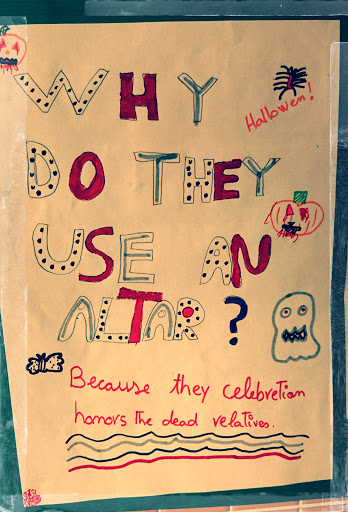 WHY
Hallowen!
DO THEY
USE AN
ALTAR ?
Because they celebretion
honors the dead relatives.